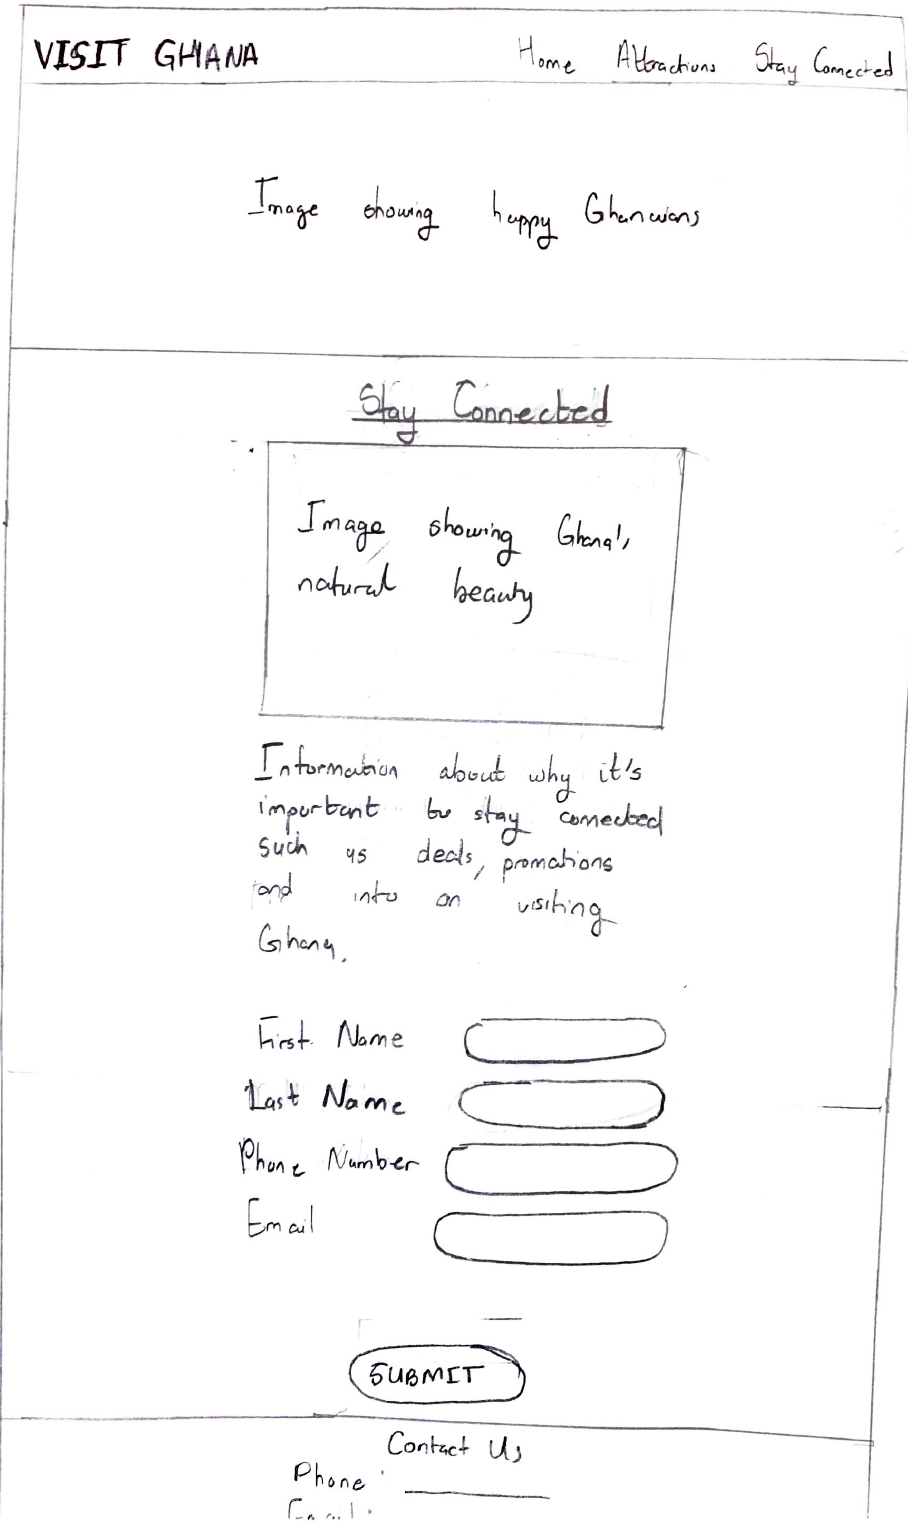 VISIT GHANA Home Attractions Stay Connected
Image showing happy Ghanaians
Stay Connected
Image showing Ghana's
natural beauty
Information about why it's
important to stay connected
such as deals, promotions
and info on visiting
Ghana.
First Name
Last Name
Phone Number
Email
SUBMIT
Contact Us
Phone :
Email :